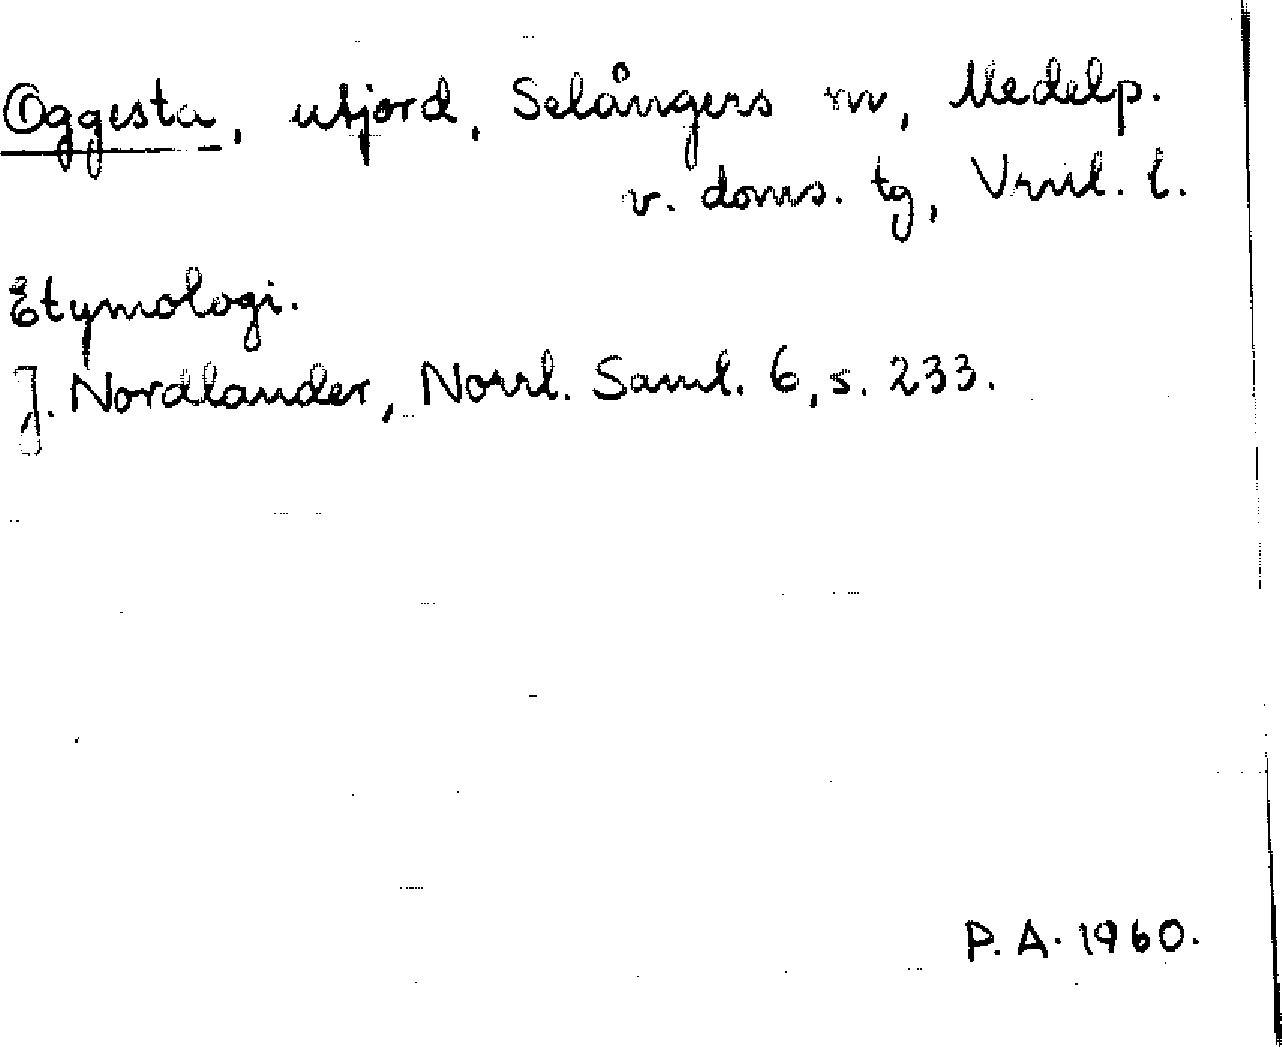 Oggesta, utjord, Selångers sn, Medelp.
v. doms. tg, Vrnl. l.
Etymologi.
J. Nordlander, Norrl. Saml. 6, s. 233.
P. A. 1960.